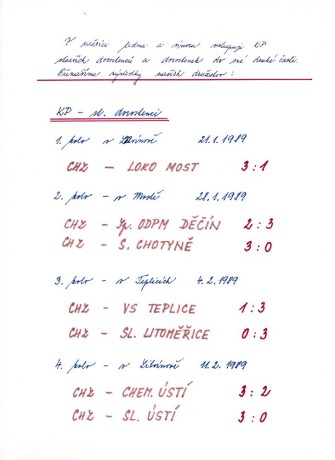 V měsíci lednu a únoru vstupuje KP
starších dorostenců a dorostenek do své druhé části.
Přinášíme výsledky našich družstev :
KP - st. dorostenci
1. kolo - v Litvínově 21.1.1989
CHZ - LOKO MOST 3:1
2. kolo - v Mostě 28.1.1989
CHZ - Sp. ODPM DĚČÍN 2:3
CHZ - S. CHOTYNĚ 3:0
3. kolo - v Teplicích 4.2.1989
CHZ - VS TEPLICE 1:3
CHZ - SL. LITOMĚŘICE 0:3
4. kolo - v Litvínově 11.2.1989
CHZ - CHEM. ÚSTÍ 3:2
CHZ - SL. ÚSTÍ 3:0